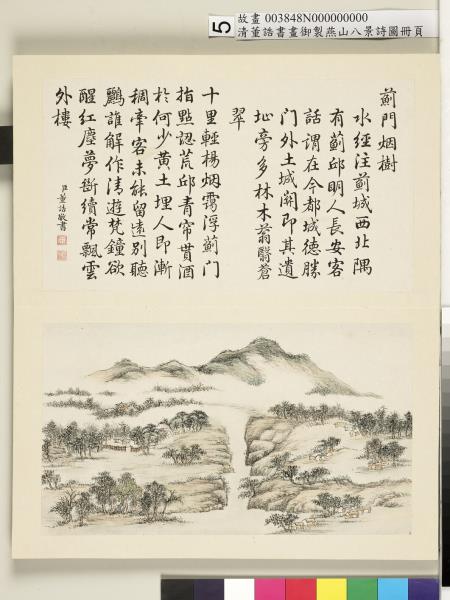 5
故畫 003848N000000000
清董誥書畫御製燕山八景詩圖冊頁
薊門烟樹
水經注薊城西北隅
有薊邱明人長安客
話謂在今都城德勝
門外土城關即其遺
址旁多林木蓊翳蒼
翠
十里輕楊烟靄浮薊門
指點認荒邱青帘貰酒
於何少黃土埋人即漸
稠牽客未能留遠別聽
鸝誰解作清遊梵鐘欲
醒紅塵夢斷續常飄雲
外樓
臣董誥敬書